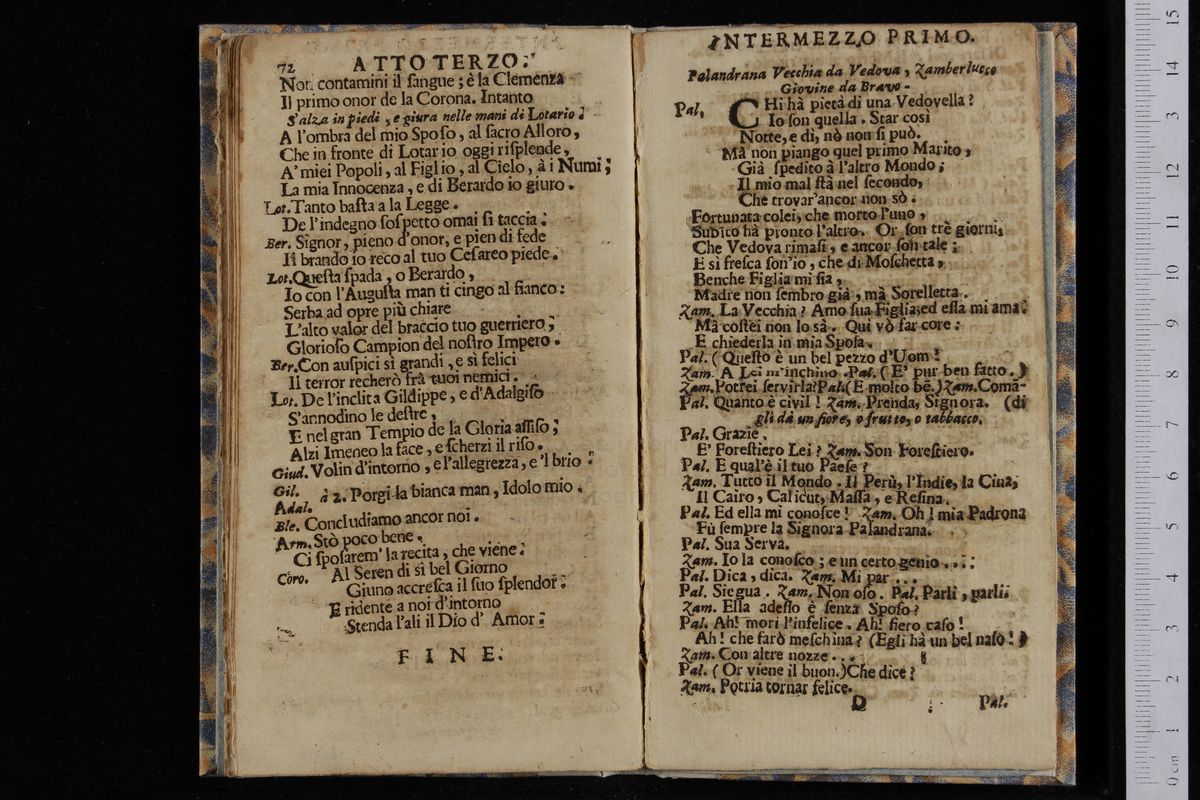 72 ATTO TERZO.
Non contamini il ſangue; è la Clemenza
Il primo onor de la Corona. Intanto
S'alza in piedi, e giura nelle mani di Lotario.
A l'ombra del mio Spoſo, al ſacro Alloro,
Che in fronte di Lotario oggi riſplende,
A' miei Popoli, al Figlio, al Cielo, à i Numi;
La mia Innocenza, e di Berardo io giuro.
Lot. Tanto baſta a la Legge.
De l'indegno ſoſpetto omai ſi taccia.
Ber. Signor, pieno d'onor, e pien di fede
Il brando io reco al tuo Ceſareo piede.
Lot. Queſta ſpada, o Berardo,
Io con l'Auguſta man ti cingo al fianco:
Serba ad opre più chiare
L'alto valor del braccio tuo guerriero;
Glorioſo Campion del noſtro Impero.
Ber. Con auſpici sì grandi, e sì felici
Il terror recherò frà tuoi nemici.
Lot. De l'inclita Gildippe, e d'Adalgiſo
S'annodino le deſtre,
E nel gran Tempio de la Gloria aſſiſo;
Alzi Imeneo la face, e ſcherzi il riſo.
Giud. Volin d'intorno, e l'allegrezza, e 'l brio.
Gil.
Adal. à 2. Porgi la bianca man, Idolo mio.
Ble. Concludiamo ancor noi.
Arm. Stò poco bene.
Ci ſpoſarem' la recita, che viene.
Coro. Al Seren di sì bel Giorno
Giuno accreſca il ſuo ſplendor.
E ridente a noi d'intorno
Stenda l'ali il Dio d' Amor.
FINE.
INTERMEZZO PRIMO.
Palandrana Vecchia da Vedova, Zamberlucco
Giovine da Bravo.
Pal. CHi hà pietà di una Vedovella?
Io ſon quella. Star così
Notte, e dì, nò non ſi può.
Mà non piango quel primo Marito,
Già ſpedito à l'altro Mondo;
Il mio mal ſtà nel ſecondo,
Che trovar'ancor non sò.
Fortunata colei, che morto l'uno,
Subito hà pronto l'altro. Or ſon trè giorni,
Che Vedova rimaſi, e ancor ſon tale;
E sì freſca ſon'io, che di Moſchetta,
Benche Figlia mi ſia,
Madre non ſembro già, mà Sorelletta.
Zam. La Vecchia? Amo ſua Figlia; ed eſſa mi ama.
Mà coſtei non lo sà. Qui vò far core:
E chiederla in mia Spoſa.
Pal. (Queſto è un bel pezzo d'Uom!
Zam. A Lei m'inchino. Pal. (E' pur ben fatto.)
Zam. Potrei ſervirla? Pal. (E molto bẽ.) Zam. Comã-
Pal. Quanto è civil! Zam. Prenda, Signora. (di
gli dà un fiore, o frutto, o tabbacco.
Pal. Grazie.
E' Foreſtiero Lei? Zam. Son Foreſtiero.
Pal. E qual'è il tuo Paeſe?
Zam. Tutto il Mondo. Il Perù, l'Indie, la Cina,
Il Cairo, Calicut, Maſſa, e Reſina.
Pal. Ed ella mi conoſce! Zam. Oh! mia Padrona
Fù ſempre la Signora Palandrana.
Pal. Sua Serva.
Zam. Io la conoſco; e un certo genio....
Pal. Dica, dica. Zam. Mi par...
Pal. Siegua. Zam. Non oſo. Pal. Parli, parli.
Zam. Eſſa adeſſo è ſenza Spoſo?
Pal. Ah! morì l'infelice. Ah! fiero caſo!
Ah! che farò meſchina? (Egli hà un bel naſo!)
Zam. Con altre nozze...
Pal. (Or viene il buon.) Che dice?
Zam. Potria tornar felice.
D Pal.